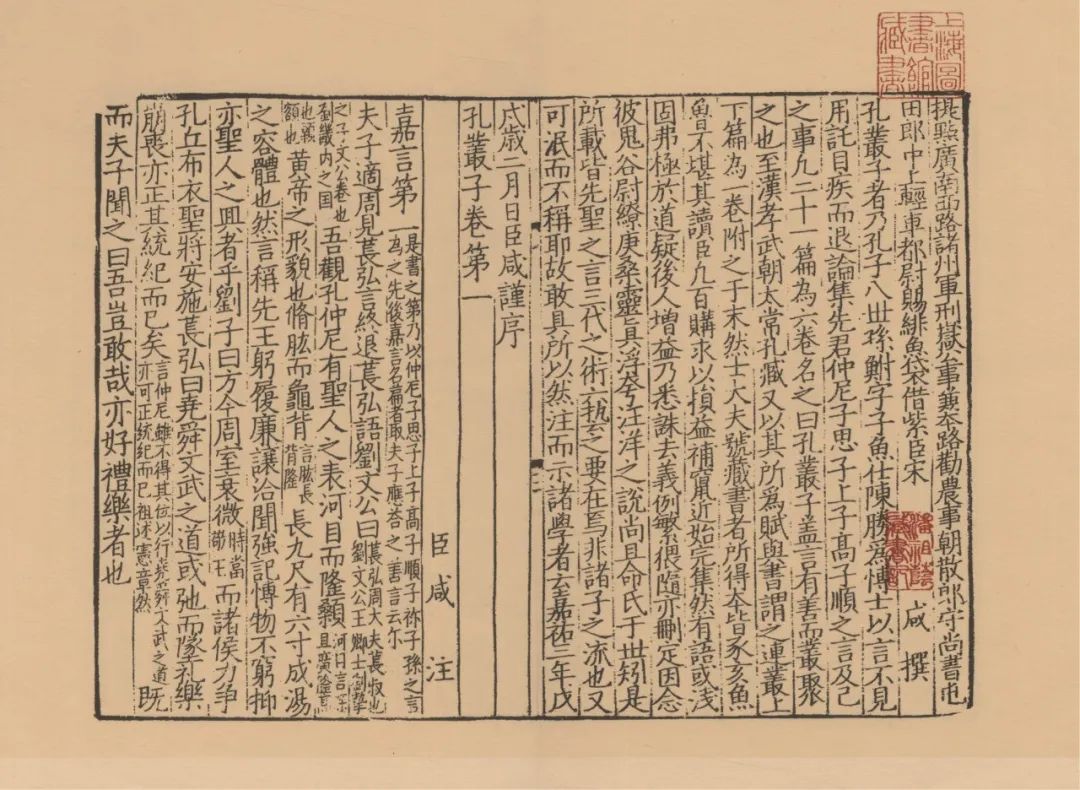 提㸃廣南西路諸州軍刑獄公事兼本路勸農事朝散郎守尚書屯
田郎中上輕車都尉賜緋魚袋借紫臣宋咸撰
孔叢子者乃孔子八世孫鮒字子魚仕陳勝爲博士以言不見
用託目疾而退論集先君仲尼子思子上子髙子順之言及己
之事凡二十一篇為六卷名之曰孔叢子盖言有善而叢聚
之也至漢孝武朝太常孔臧又以其所爲賦與書謂之連叢上
下篇為一卷附之于末然士大夫號藏書者所得本皆豕亥魚
魯不堪其讀臣凢百購求以損益補竄近始完集然有語或淺
固弗極於道疑後人増益乃悉誅去義例繁猥隨亦刪定因念
彼鬼谷尉繚庚桑靈眞浮夸汪洋之說尚且命氏于世矧是
所載皆先聖之言三代之術六藝之要在焉非諸子之流也又
可泯而不稱耶故敢具所以然注而示諸學者云嘉祐三年戊
戍歲二月日臣咸謹序
孔叢子卷第一
臣咸注
嘉言第一是書之第乃以仲尼子思子上子髙子順子祢子孫之言
為之先後嘉言名篇者取夫子應荅之善言云尔
夫子適周見萇弘言終退萇弘語劉文公曰萇弘周大夫萇叔也
劉文公王卿士劉摯
之子文公卷也
劉畿内之国吾觀孔仲尼有聖人之表河目而隆顙河目言深
且廣隆髙
也顙
額也黄帝之形貌也脩肱而龜背言肱長
背隆長九尺有六寸成湯
之容體也然言稱先王躬履廉讓洽聞強記博物不窮抑
亦聖人之興者乎劉子曰方今周室衰微時當
敬王而諸侯力争
孔丘布衣聖將安施萇弘曰堯舜文武之道或弛而墜礼樂
崩喪亦正其統紀而已矣言仲尼雖不得其位以行堯舜文武之道
亦可正統紀而已祖述憲章然既
而夫子聞之曰吾豈敢哉亦好禮樂者也
上海圖
書館
藏書